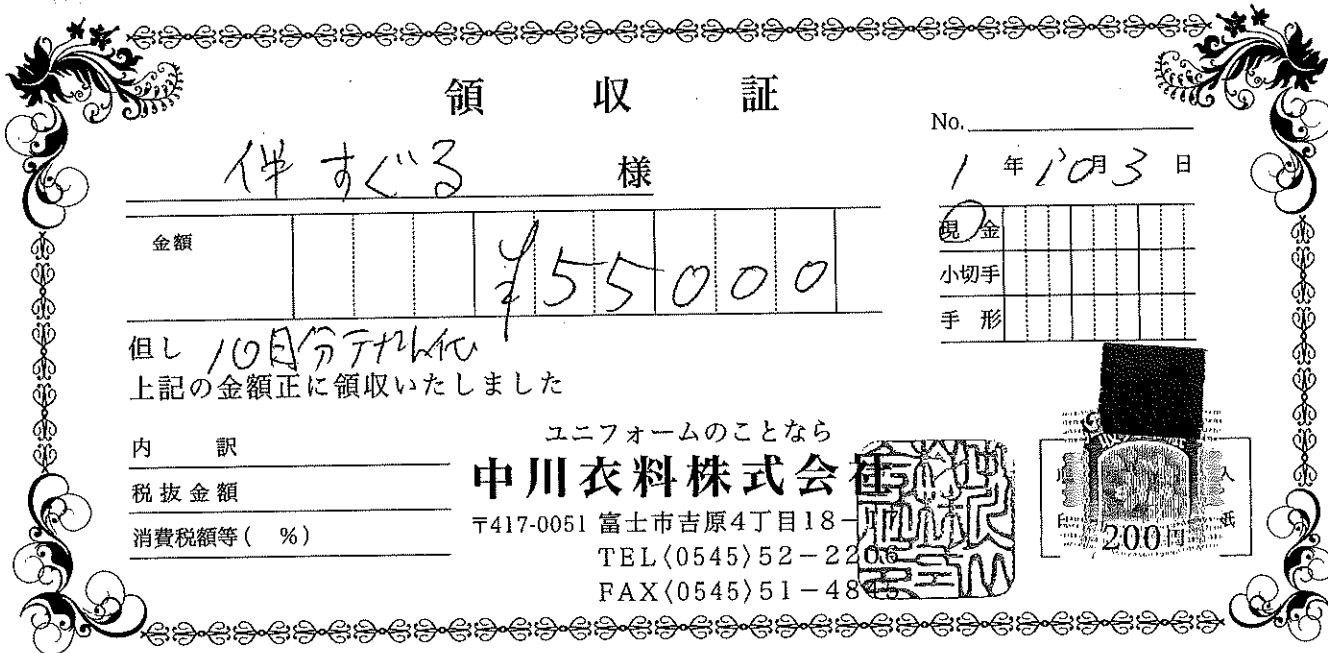 領収証
No.
伴すぐる 様
1年10月3日
金額 ¥55000
現金
小切手
手形
但し 10月分テナント代
上記の金額正に領収いたしました
内訳
税抜金額
消費税額等( %)
ユニフォームのことなら
中川衣料株式会社
〒417-0051 富士市吉原4丁目18-
TEL〈0545〉52-2206
FAX〈0545〉51-48
200円